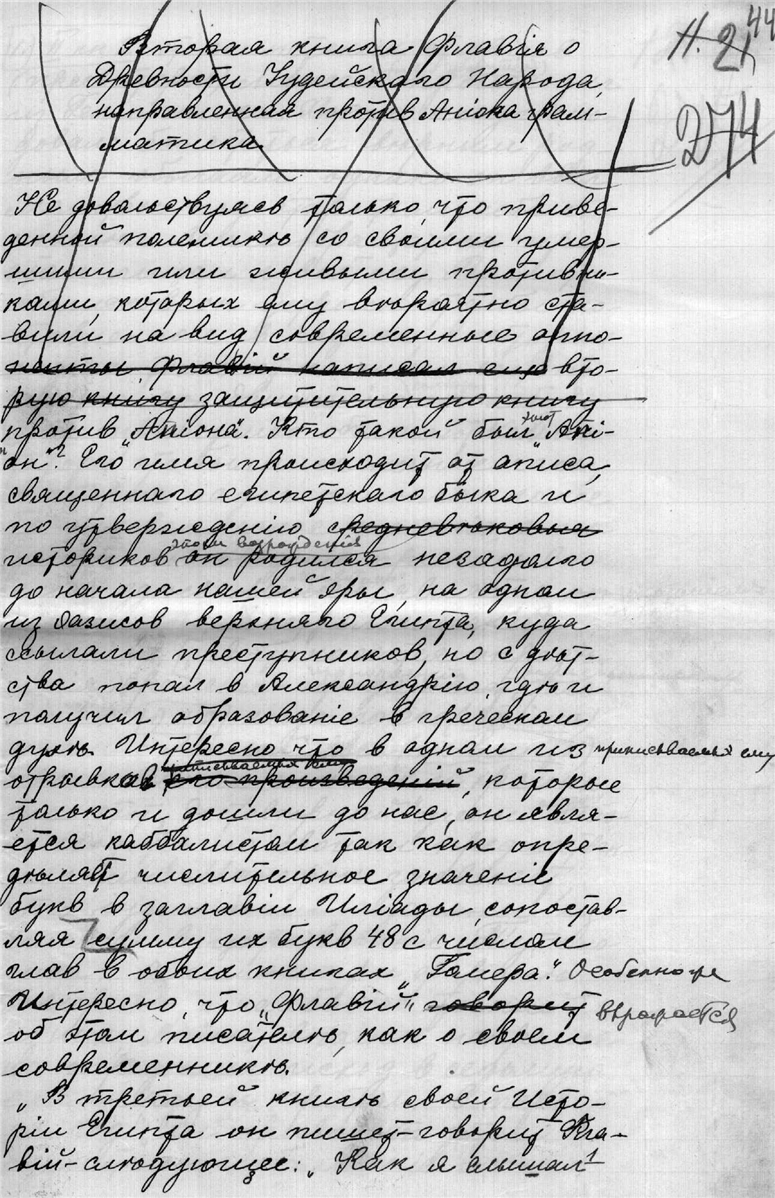 44
Н. 21
274
Вторая книга Флавія о
Древности Іудейскаго Народа,
направленная против Апіона грам-
матика.
Не довольствуясь только что приве-
денной полемикѣ со своими умер-
шими или живыми противни-
ками, которых ему вѣроятно ста-
вили на вид современные оппо-
ненты, Флавій написал еще вто-
рую книгу защитительную книгу
против „Апіона“. Кто такой был этот „Апі-
он“? Его имя происходит от аписа,
священнаго египетскаго быка и
по утвержденію средневѣковых
историков эпохи возрожденія он родился незадолго
до начала нашей эры, на одном
из оазисов верхняго Египта, куда
ссылали преступников, но с дѣт-
ства попал в Александрію, гдѣ и
получил образованіе в греческом
духѣ. Интересно что в одном из приписываемых ему
отрывков приписываемых ему его произведеній, которые
только и дошли до нас, он явля-
ется каббалистом так как опре-
дѣляет числительное значеніе
букв в заглавіи Иліады, сопостав-
ляя сумму их букв 48 с числом
глав в обоих книгах „Гомера“. Особенно же
Интересно, что „Флавій“ говорит выражается
об этом писателѣ, как о своем
современникѣ.
„В третьей книгѣ своей Исто-
ріи Египта он пишет- говорит Фла-
вій- слѣдующее: „Как я слышал